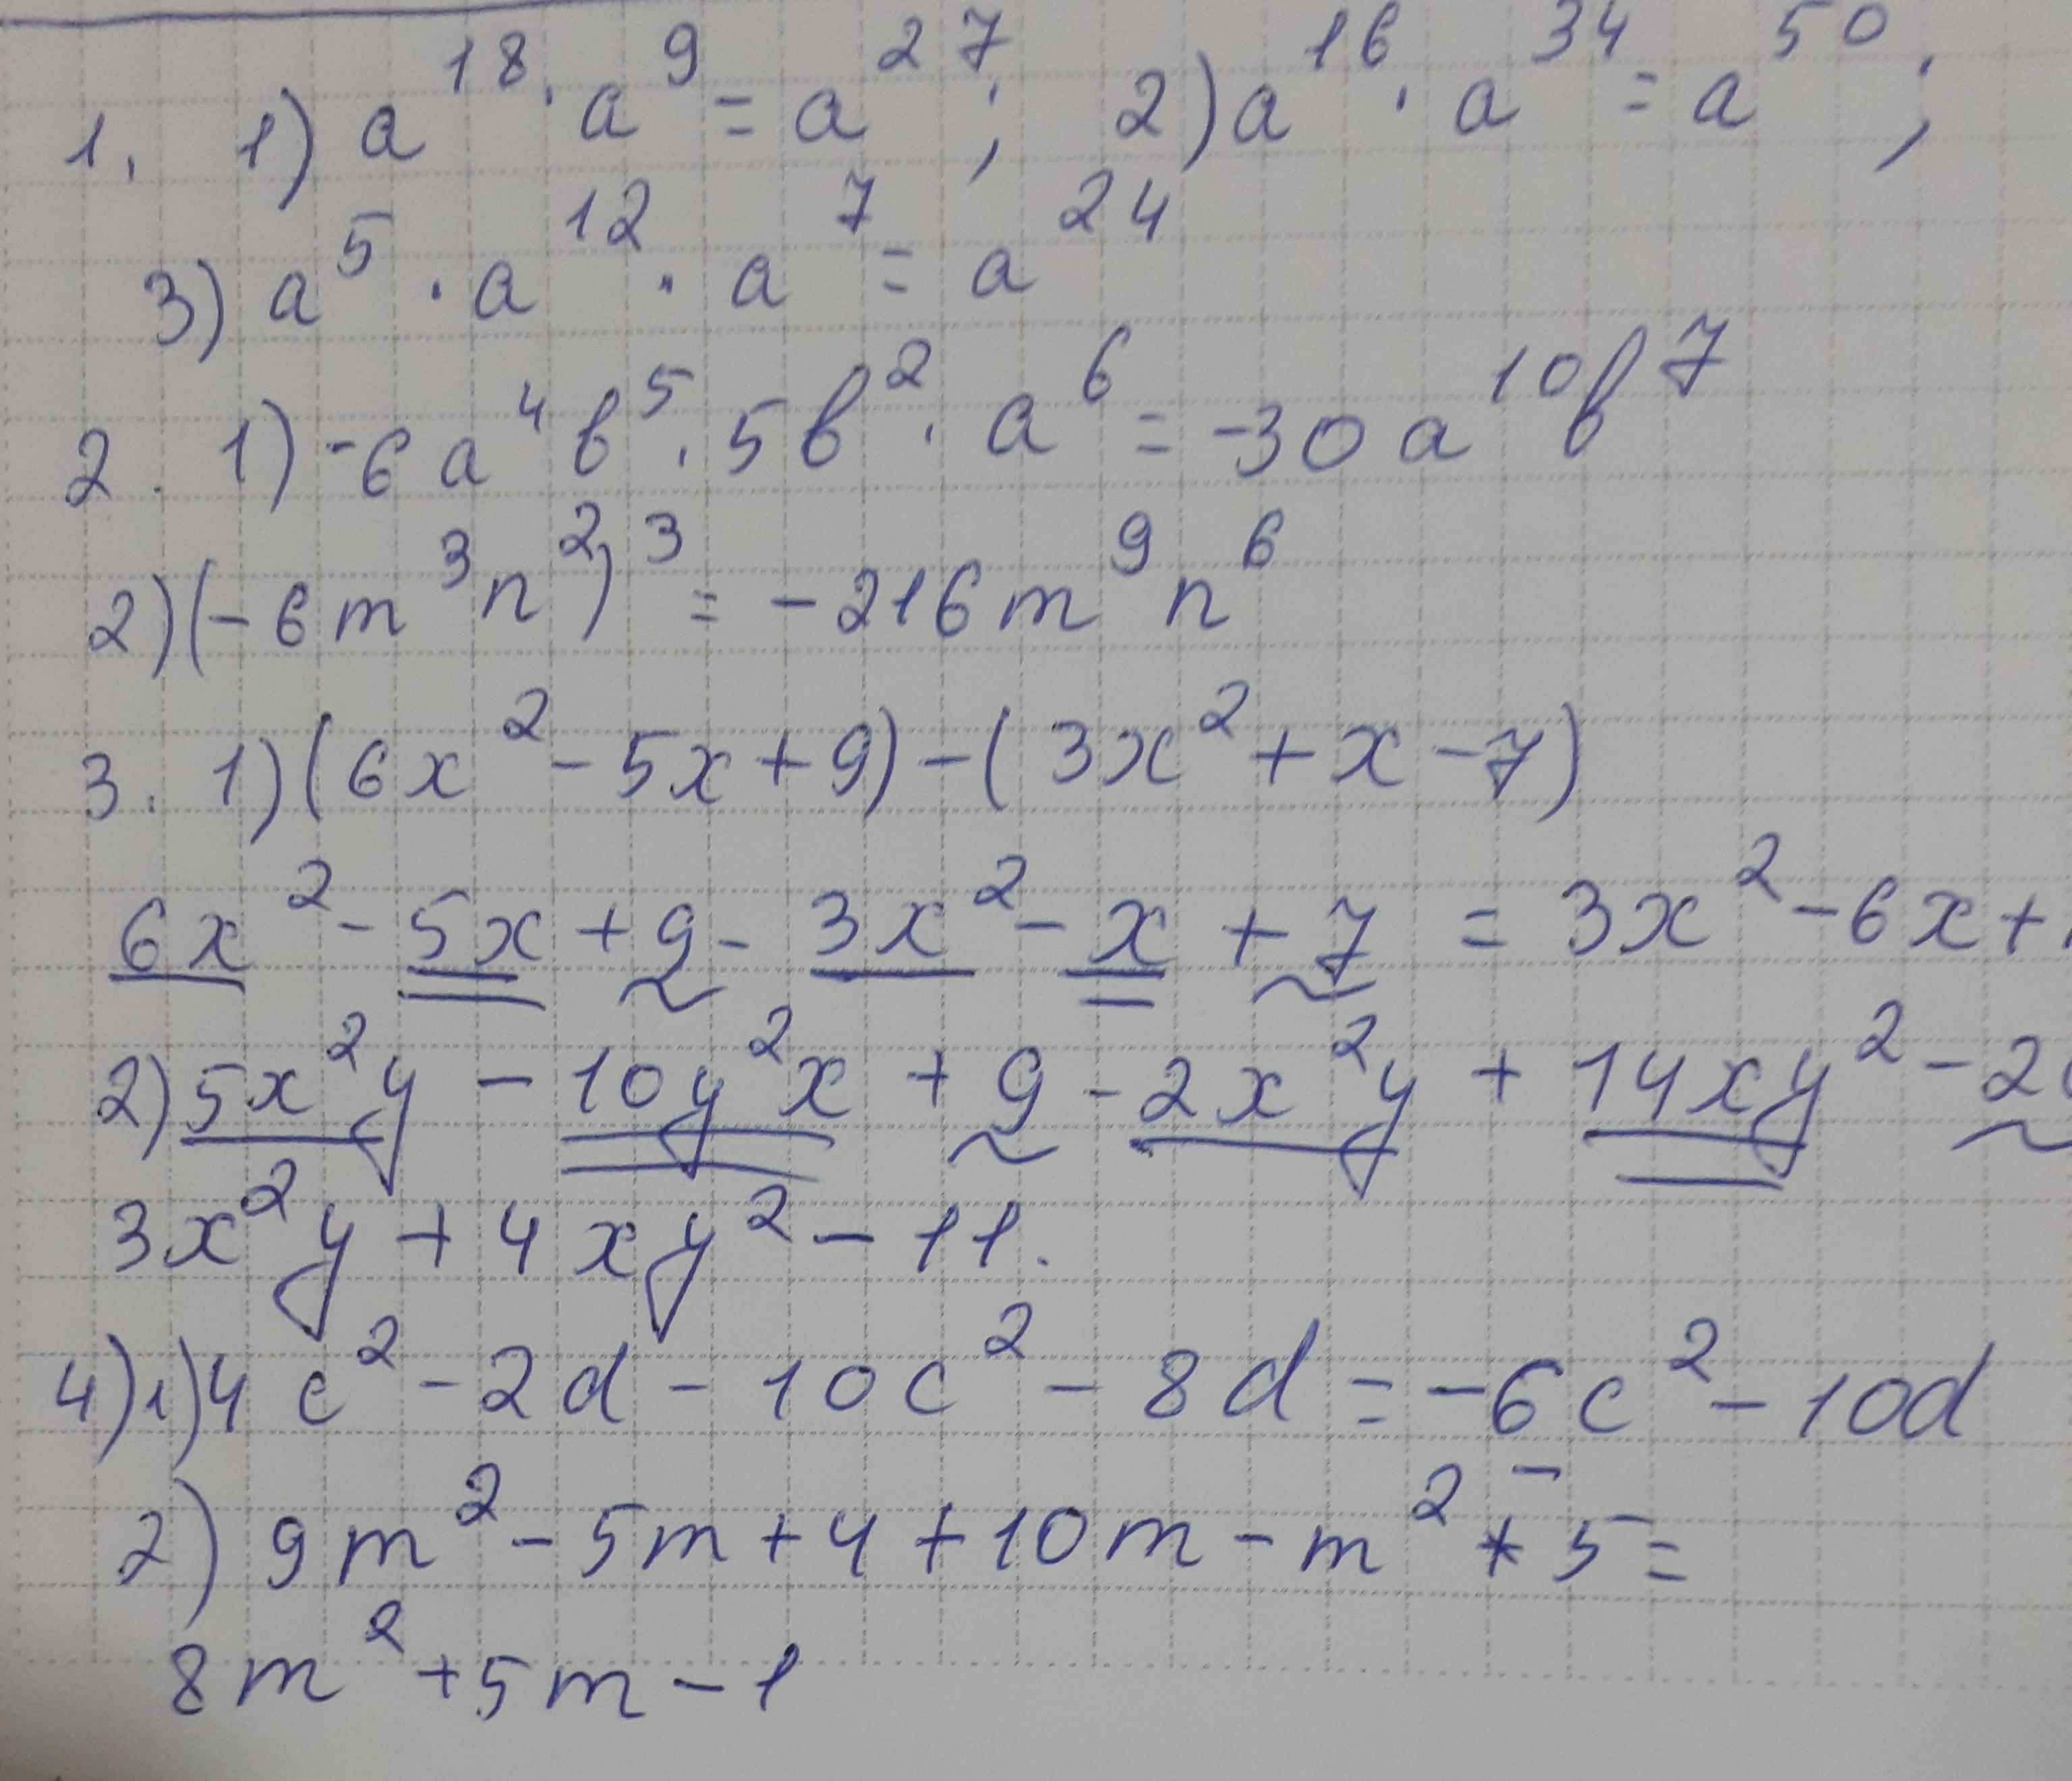 1. 1) a¹⁸ · a⁹ = a²⁷; 2) a¹⁶ · a³⁴ = a⁵⁰;
3) a⁵ · a¹² · a⁷ = a²⁴
2. 1) -6a⁴b⁵ · 5b² · a⁶ = -30a¹⁰b⁷
2) (-6m³n²)³ = -216m⁹n⁶
3. 1) (6x² - 5x + 9) - (3x² + x - 7)
6x² - 5x + 9 - 3x² - x + 7 = 3x² - 6x +
2) 5x²y - 10y²x + 9 - 2x²y + 14xy² - 2
3x²y + 4xy² - 11.
4) 1) 4c² - 2d - 10c² - 8d = -6c² - 10d
2) 9m² - 5m + 4 + 10m - m² - 5 =
8m² + 5m - 1